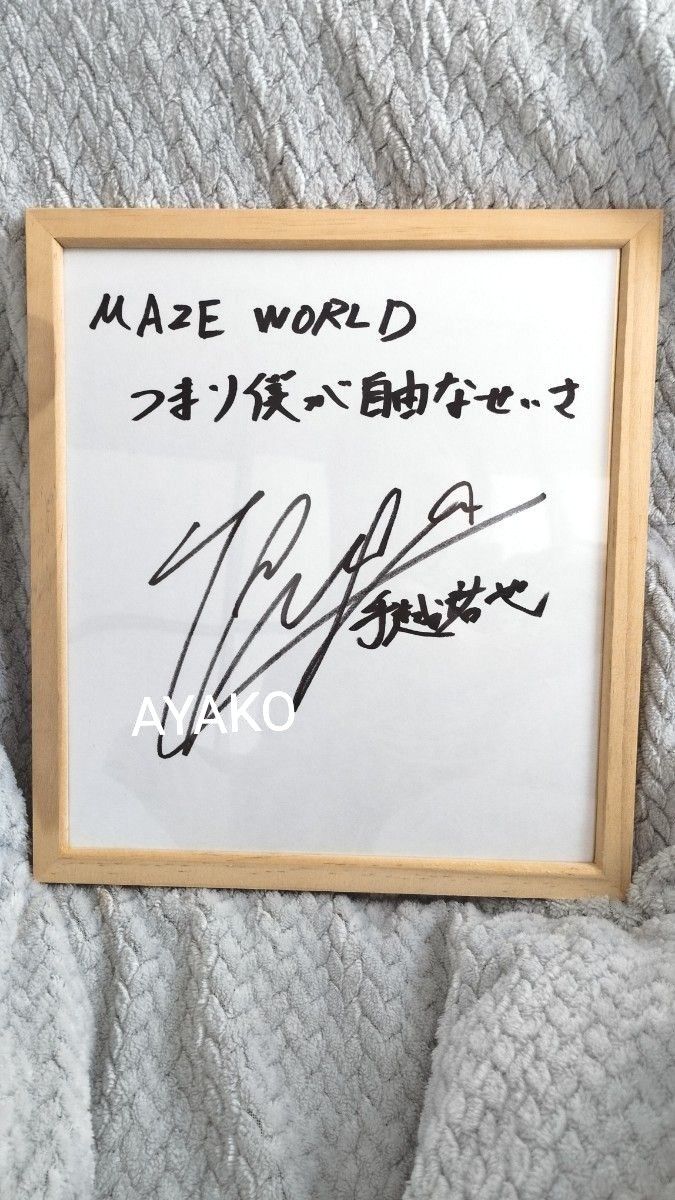 MAZE WORLD
つまり僕が自由なせいさ
手越祐也
AYAKO